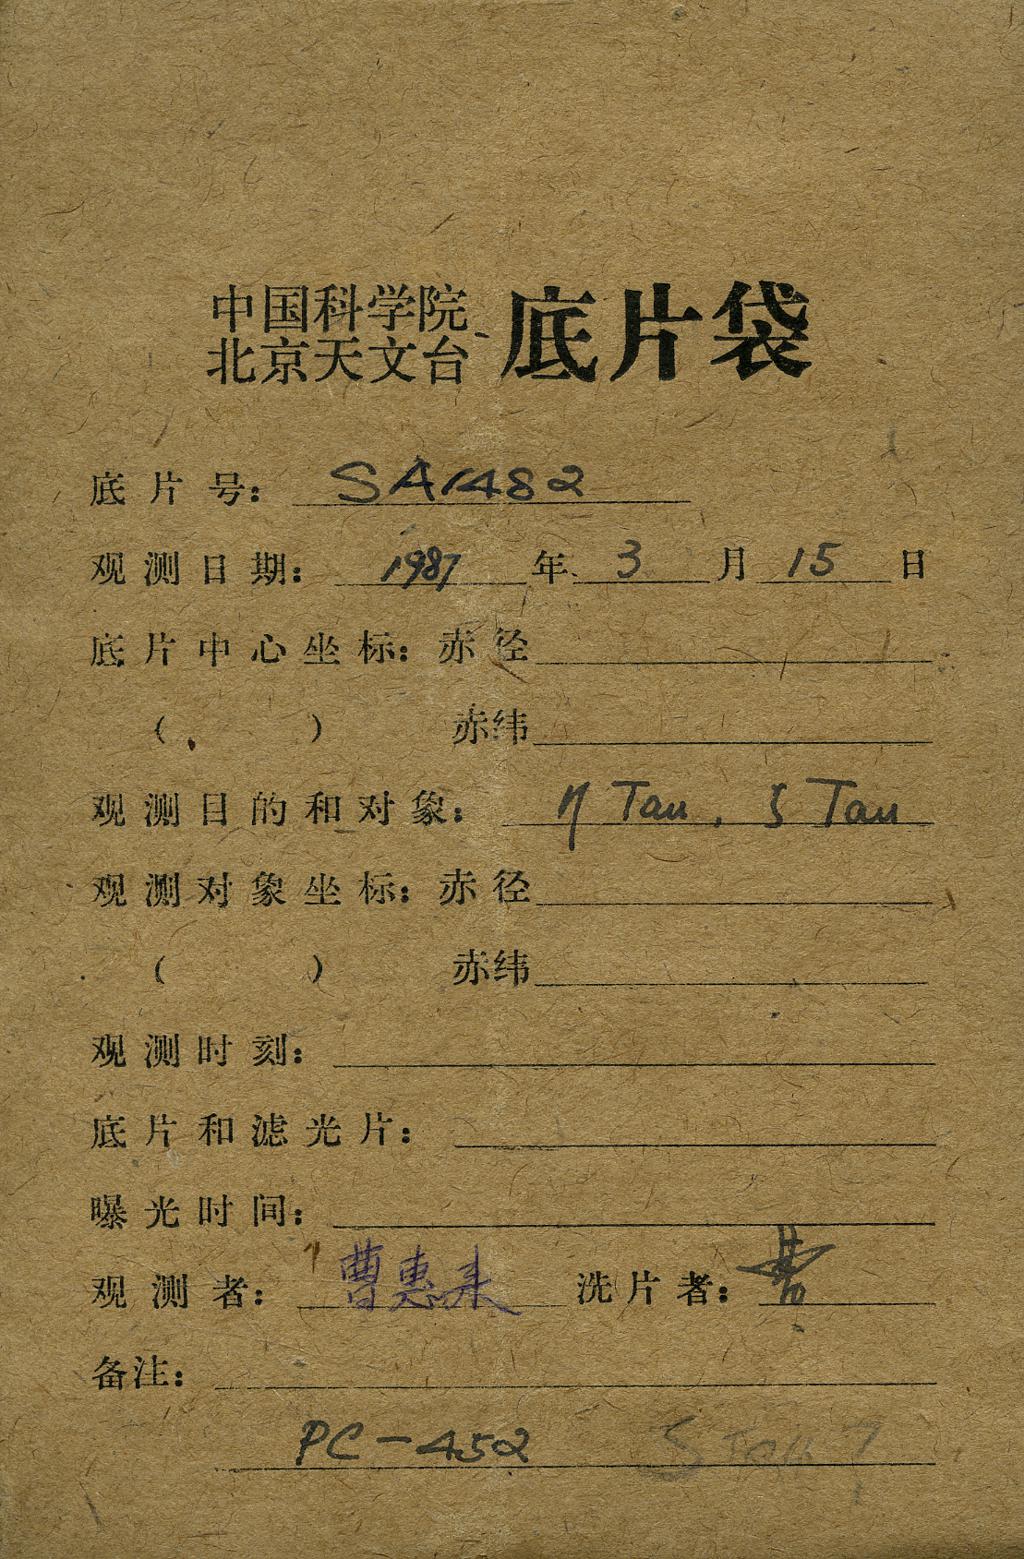 中国科学院
北京天文台 底片袋
底片号: SA1482
观测日期: 1987 年 3 月 15 日
底片中心坐标: 赤径
( ) 赤纬
观测目的和对象: η Tau, ζ Tau
观测对象坐标: 赤径
( ) 赤纬
观测时刻:
底片和滤光片:
曝光时间:
观测者: 曹惠来 洗片者: 曹
备注:
PC-452